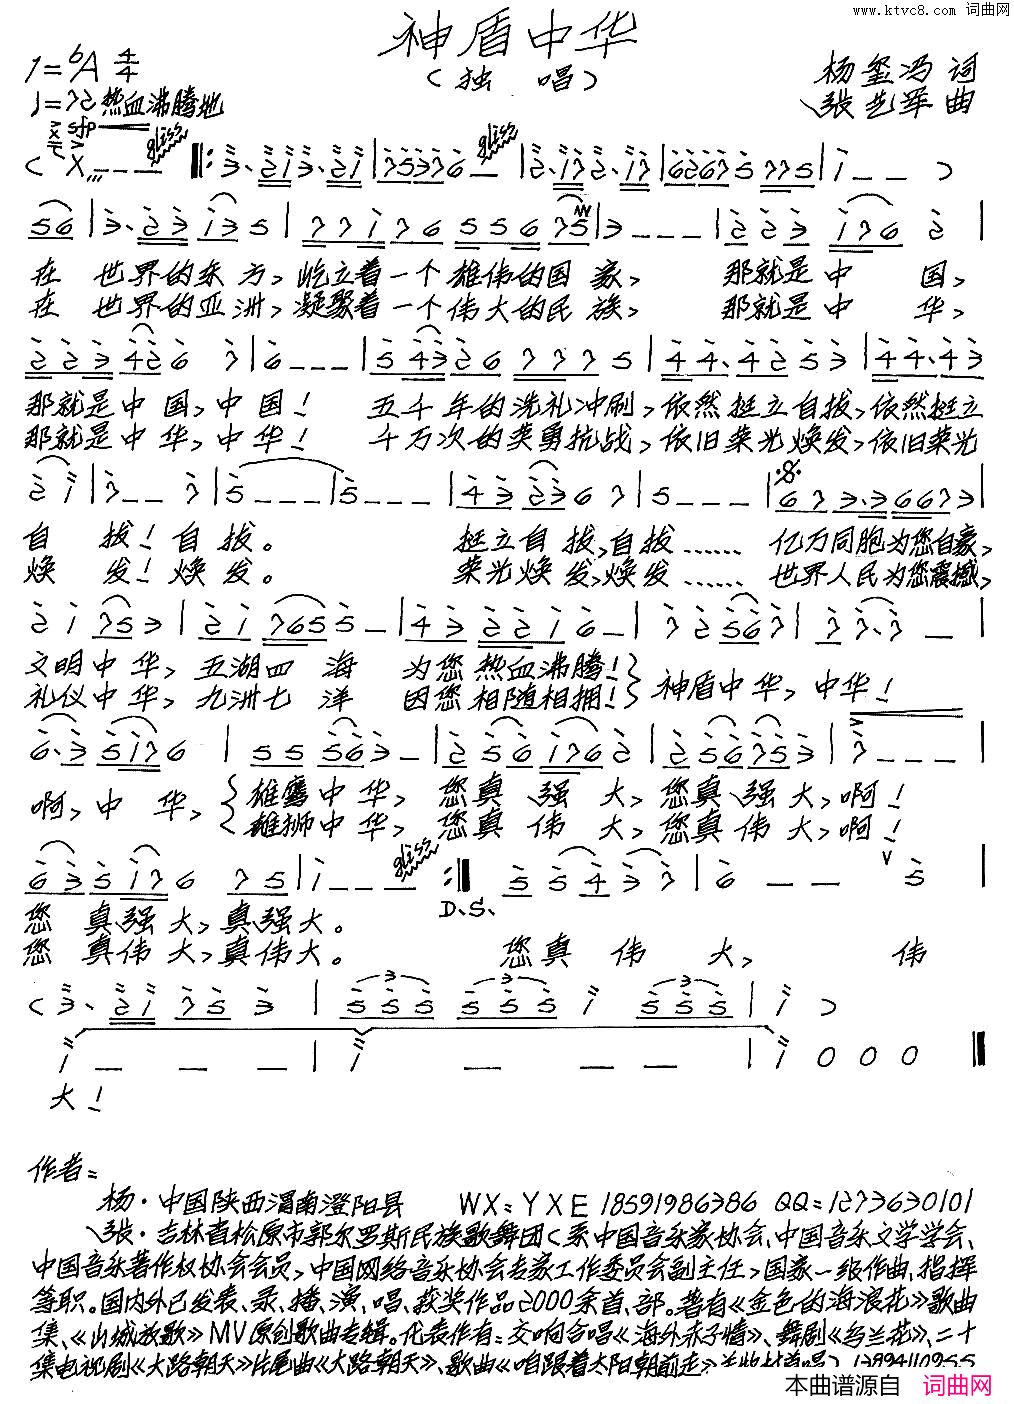 www.ktvc8.com 词曲网
神盾中华
(独 唱)
1=♭A 4/4
杨玺冯 词
张艺军 曲
♩=72 热血沸腾地
sfp
gliss
gliss
在 世界的东方,屹立着一个雄伟的国 家, 那就是中 国,
在 世界的亚洲,凝聚着一个伟大的民 族, 那就是中 华,
那就是中国,中国! 五千年的洗礼冲刷,依然挺立自拔,依然挺立
那就是中华,中华! 千万次的英勇抗战,依旧荣光焕发,依旧荣光
自 拔!自拔。 挺立自拔,自拔…… 亿万同胞为您自豪,
焕 发!焕发。 荣光焕发,焕发…… 世界人民为您震撼,
文明中华,五湖四 海 为您热血沸腾!
礼仪中华,九洲七 洋 因您相随相拥! 神盾中华,中华!
啊,中 华, 雄鹰中华, 您真 强 大,您真强大,啊!
雄狮中华, 您真 伟 大,您真伟大,啊!
gliss
D.S.
您 真强 大,真强大。
您 真伟 大,真伟大。 您真 伟 大, 伟
大!
作者:
杨·中国陕西渭南澄阳县 WX:YXE 18591986386 QQ:1273630101
张·吉林省松原市郭尔罗斯民族歌舞团(系中国音乐家协会、中国音乐文学学会、
中国音乐著作权协会会员,中国网络音乐协会专家工作委员会副主任,国家一级作曲、指挥
等职。国内外已发表、录、播、演、唱、获奖作品2000余首、部。著有《金色的海浪花》歌曲
集、《山城放歌》MV原创歌曲专辑。代表作有:交响合唱《海外赤子情》、舞剧《乌兰花》、二十
集电视剧《大路朝天》片尾曲《大路朝天》、歌曲《咱跟着太阳朝前走》
本曲谱源自 词曲网